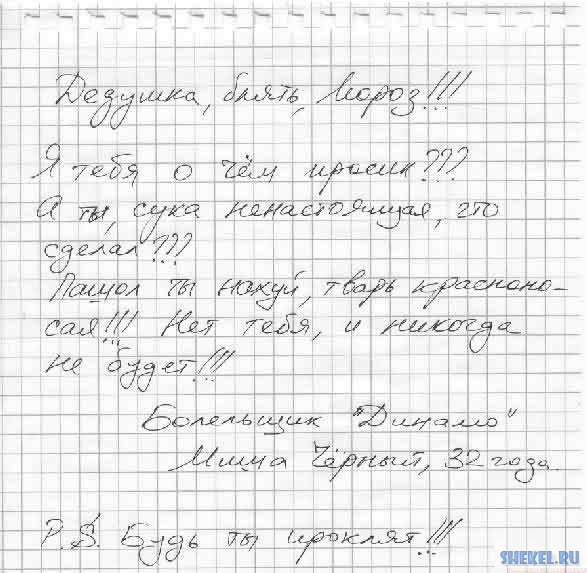 Дедушка, блять, Мороз!!!
Я тебя о чём просил???
А ты, сука ненастоящая, што
сделал???
Пашол ты нахуй, тварь красноно-
сая!!! Нет тебя, и никогда
не будет!!!
Болельщик "Динамо"
Миша Чёрный, 32 года.
P.S. Будь ты проклят!!!
SHEKEL.RU